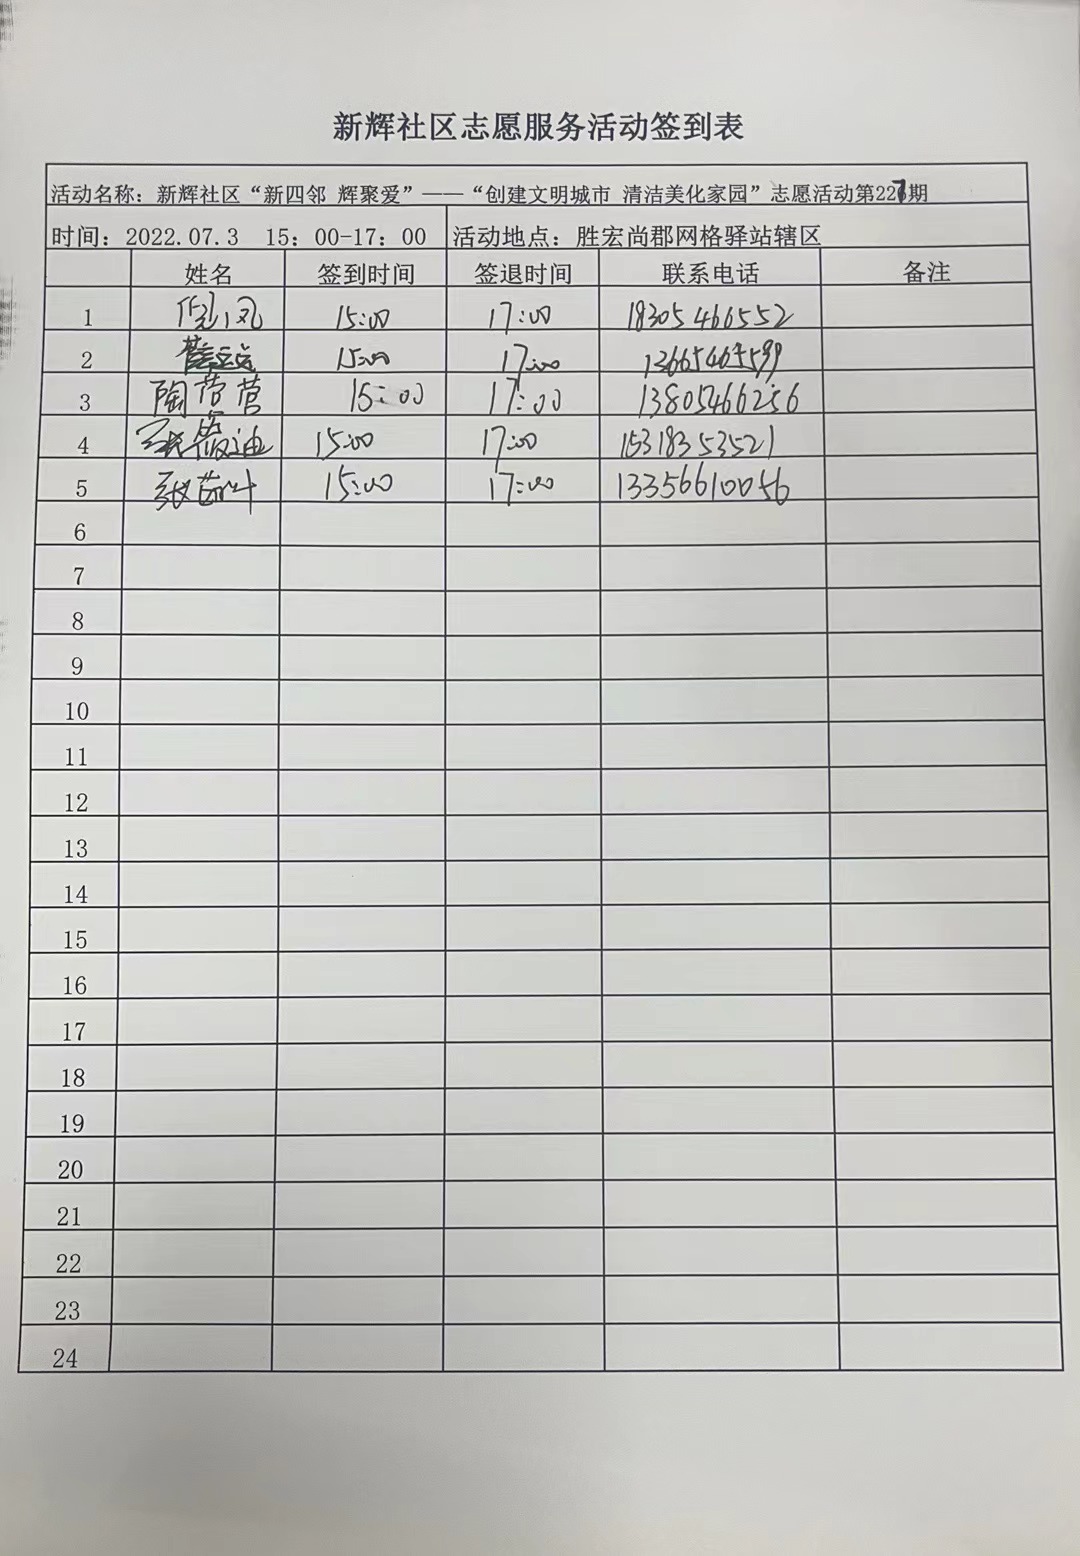 新辉社区志愿服务活动签到表
活动名称：新辉社区“新四邻 辉聚爱”——“创建文明城市 清洁美化家园”志愿活动第227期
时间：2022.07.3 15：00-17：00 活动地点：胜宏尚郡网格驿站辖区
姓名 签到时间 签退时间 联系电话 备注
1 15:00 17:00 18305466552
2 15:00 17:00
3 陶营营 15:00 17:00 13805466256
4 15:00 17:00 15318353521
5 张苗叶 15:00 17:00 13356610056
6
7
8
9
10
11
12
13
14
15
16
17
18
19
20
21
22
23
24